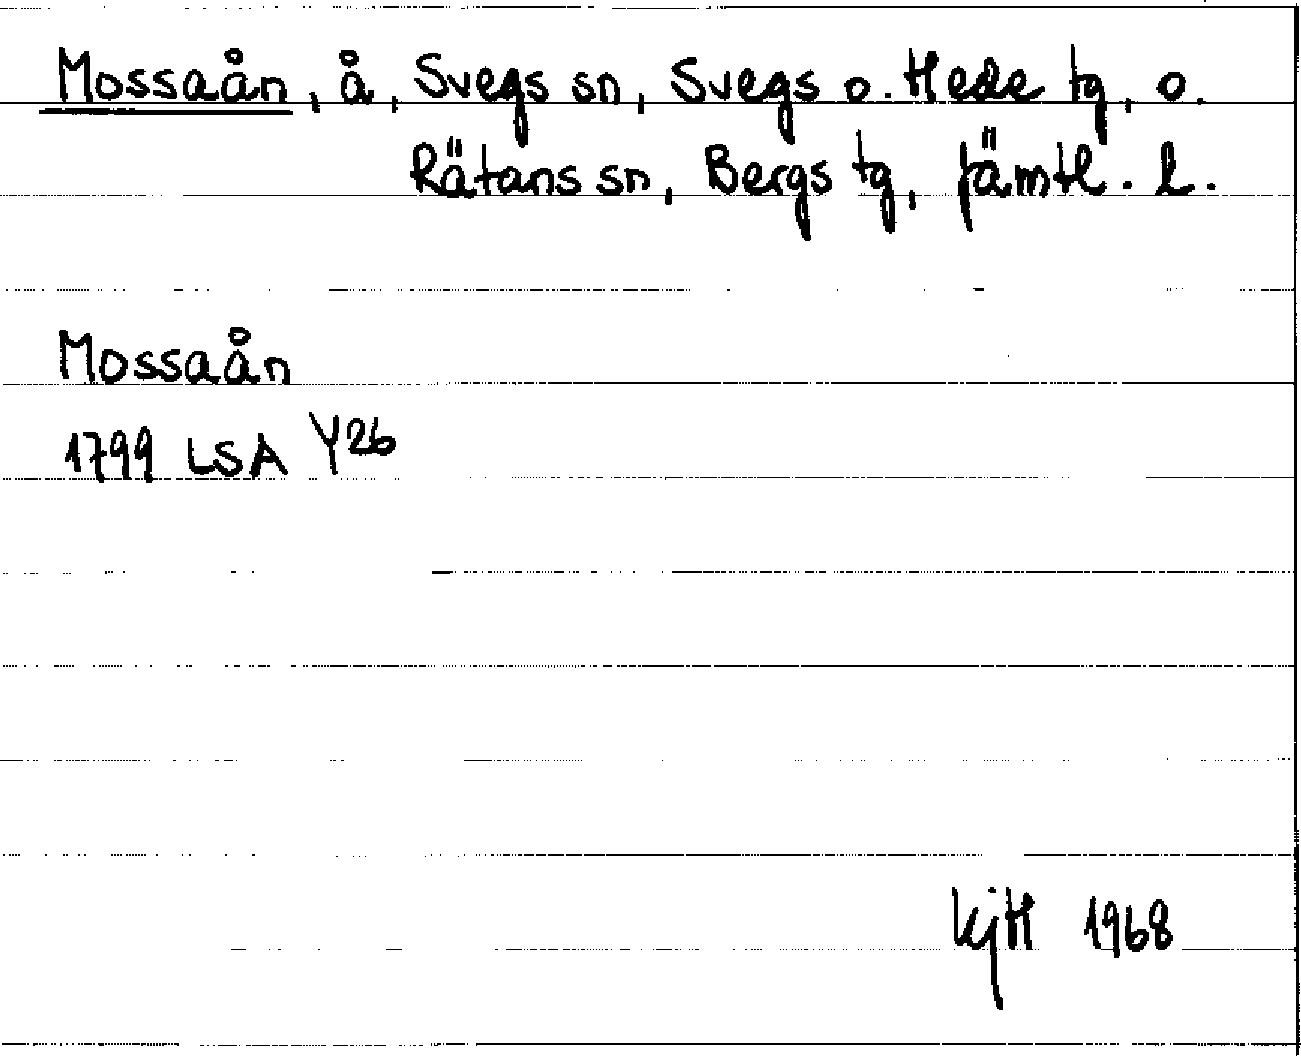 Mossaån, å, Svegs sn, Svegs o. Hede tg, o.
Rätans sn, Bergs tg, Jämtl. l.
Mossaån
1799 LSA Y26
KjH 1968